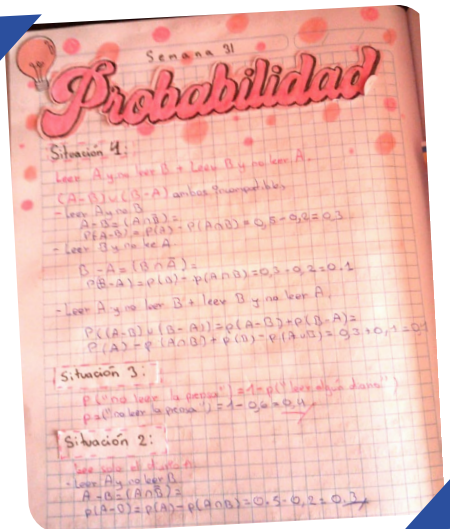 Semana 31
Probabilidad
Situación 1:
Leer A y no leer B + Leer B y no leer A.
(A-B) ∪ (B-A) ambos incompatibles,
- Leer A y no B
A-B = (A∩B̄) =
P(A-B) = P(A) - P(A∩B) = 0,5-0,2 = 0,3
- Leer B y no lee A
B-A = (B∩Ā) =
P(B-A) = p(B) - p(A∩B) = 0,3-0,2 = 0.1
- Leer A y no leer B + leer B y no leer A,
P((A-B) ∪ (B-A)) = p(A-B) + p(B-A) =
P(A) - P(A∩B) + p(B) - P(A∪B) = 0,3+0,1 =
Situación 3:
P("no leer la prensa") = 1-p("leer algún diario")
p=("no leer la prensa") = 1-0,6 = 0,4
Situación 2:
leer solo el diario A
- Leer A y no leer B
A-B = (A∩B̄) =
p(A-B) = P(A) - p(A∩B) = 0.5-0,2 = 0,3